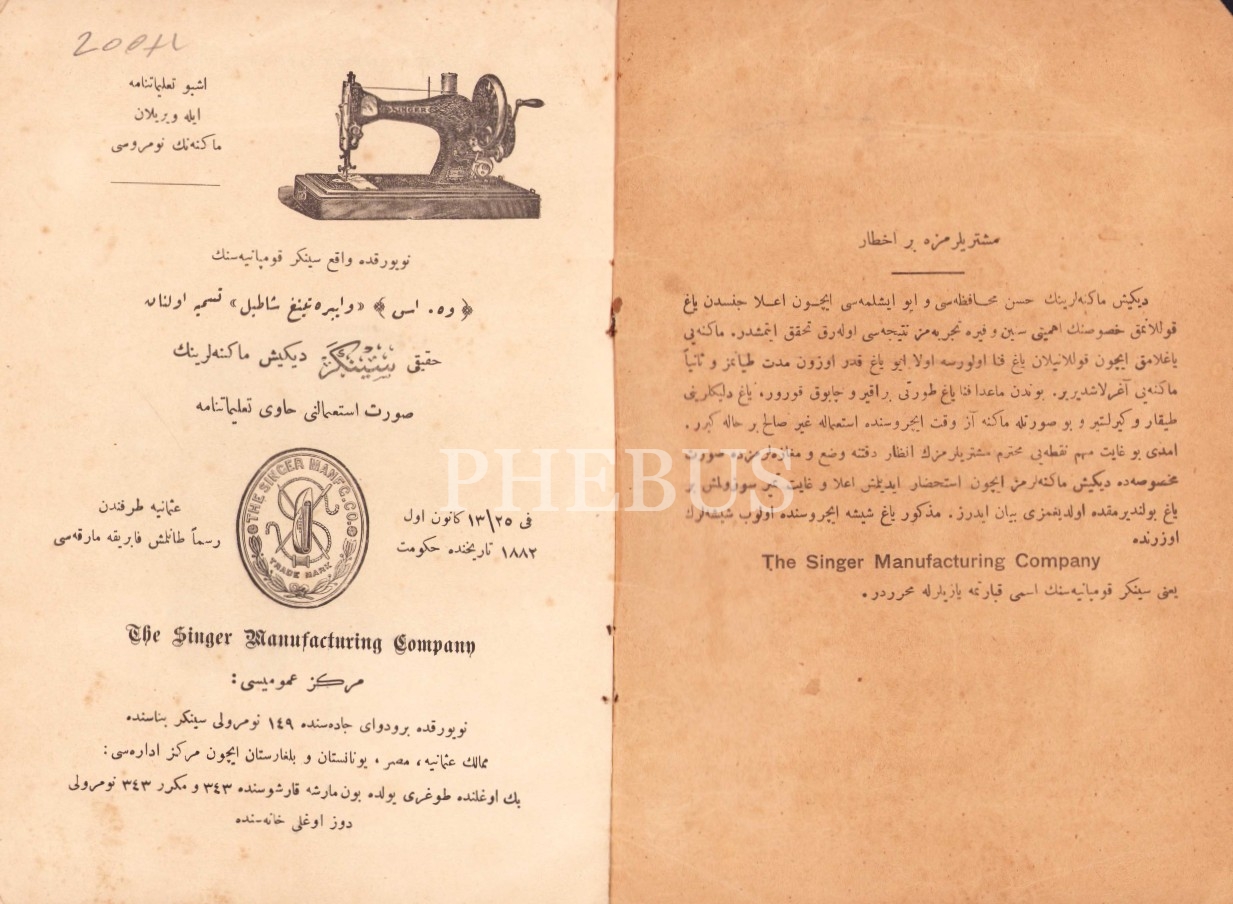 اشبو تعلیماتنامه
ایله ویریلان
ماکنه‌نك نومروسی
SINGER
نویورقده واقع سینکر قومپانیه‌سنك
﴿ وه. اس ﴾ «وایبره‌تینغ شاطبل» تسمیه اولنان
حقیقی سینکر دیکیش ماکنه‌لرینك
صورت استعمالنی حاوی تعلیماتنامه
فی ١٣\٢٥ کانون اول
١٨٨٢ تاریخنده حکومت
THE SINGER MANF'G. CO.
TRADE MARK
عثمانیه طرفندن
رسماً طانلمش فابریقه مارقه‌سی
The Singer Manufacturing Company
مرکز عمومیسی:
نویورقده برودوای جاده‌سنده ١٤٩ نومرولی سینکر بناسنده
ممالك عثمانیه، مصر، یونانستان و بلغارستان ایچون مرکز اداره‌سی:
بك اوغلنده طوغری یولده بون مارشه قارشوسنده ٣٤٣ و مکرر ٣٤٣ نومرولی
دوز اوغلی خانه‌سنده
مشتریلرمزه بر اخطار
دیکیش ماکنه‌لرینك حسن محافظه‌سی و ایو ایشلمه‌سی ایچون اعلا جنسدن یاغ
قوللانمق خصوصنك اهمیتی سنین و فیره تجربه‌مز نتیجه‌سی اوله‌رق تحقق ایتمشدر. ماکنه‌یی
یاغلامق ایچون قوللانیلان یاغ فنا اولورسه اولا ایو یاغ قدر اوزون مدت طیانمز و ثانیاً
ماکنه‌یی آغرلاشدیریر. بوندن ماعدا فنا یاغ طورتی براقیر و چابوق قورور. یاغ دلیکلرینی
طیقار و کیرلنیر و بو صورتله ماکنه آز وقت ایچروسنده استعماله غیر صالح بر حاله کیرر.
امدی بو غایت مهم نقطه‌یی محترم مشتریلرمزك انظار دقتنه وضع و مغازه‌لرمزده صورت
مخصوصه‌ده دیکیش ماکنه‌لرمز ایچون استحضار ایدیلمش اعلا و غایت تمیز سوزولمش بر
یاغ بولندیرمقده اولدیغمزی بیان ایدرز. مذکور یاغ شیشه ایچروسنده اولوب شیشه‌لرك
اوزرنده
The Singer Manufacturing Company
یعنی سینکر قومپانیه‌سنك اسمی قبارتمه یازیلرله محرردر.
PHEBUS